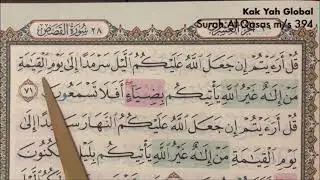 Kak Yah Global
Surah Al Qasas m/s 394
٢٨ سُورَةُ القَصَصِ
قُلْ أَرَءَيْتُمْ إِن جَعَلَ اللَّهُ عَلَيْكُمُ الَّيْلَ سَرْمَدًا إِلَىٰ يَوْمِ الْقِيَٰمَةِ
مَنْ إِلَٰهٌ غَيْرُ اللَّهِ يَأْتِيكُم بِضِيَآءٍ أَفَلَا تَسْمَعُونَ ٧١
قُلْ أَرَءَيْتُمْ إِن جَعَلَ اللَّهُ عَلَيْكُمُ النَّهَارَ سَرْمَدًا إِلَىٰ
يَوْمِ الْقِيَٰمَةِ مَنْ إِلَٰهٌ غَيْرُ اللَّهِ يَأْتِيكُم بِلَيْلٍ تَسْكُنُونَ